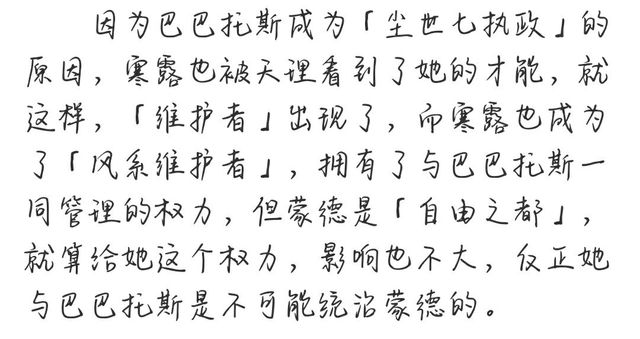 因为巴巴托斯成为「尘世七执政」的
原因，寒露也被天理看到了她的才能，就
这样，「维护者」出现了，而寒露也成为
了「风系维护者」，拥有了与巴巴托斯一
同管理的权力，但蒙德是「自由之都」，
就算给她这个权力，影响也不大，反正她
与巴巴托斯是不可能统治蒙德的。